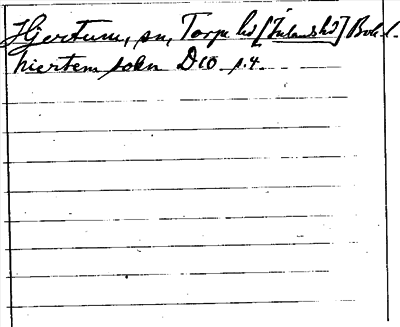 Hjertum, sn, Torpe hd [Inlands hd] Bohl.
hiertem sokn D10 s. 4.